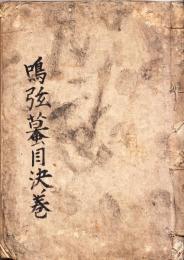 鳴弦蟇目決巻